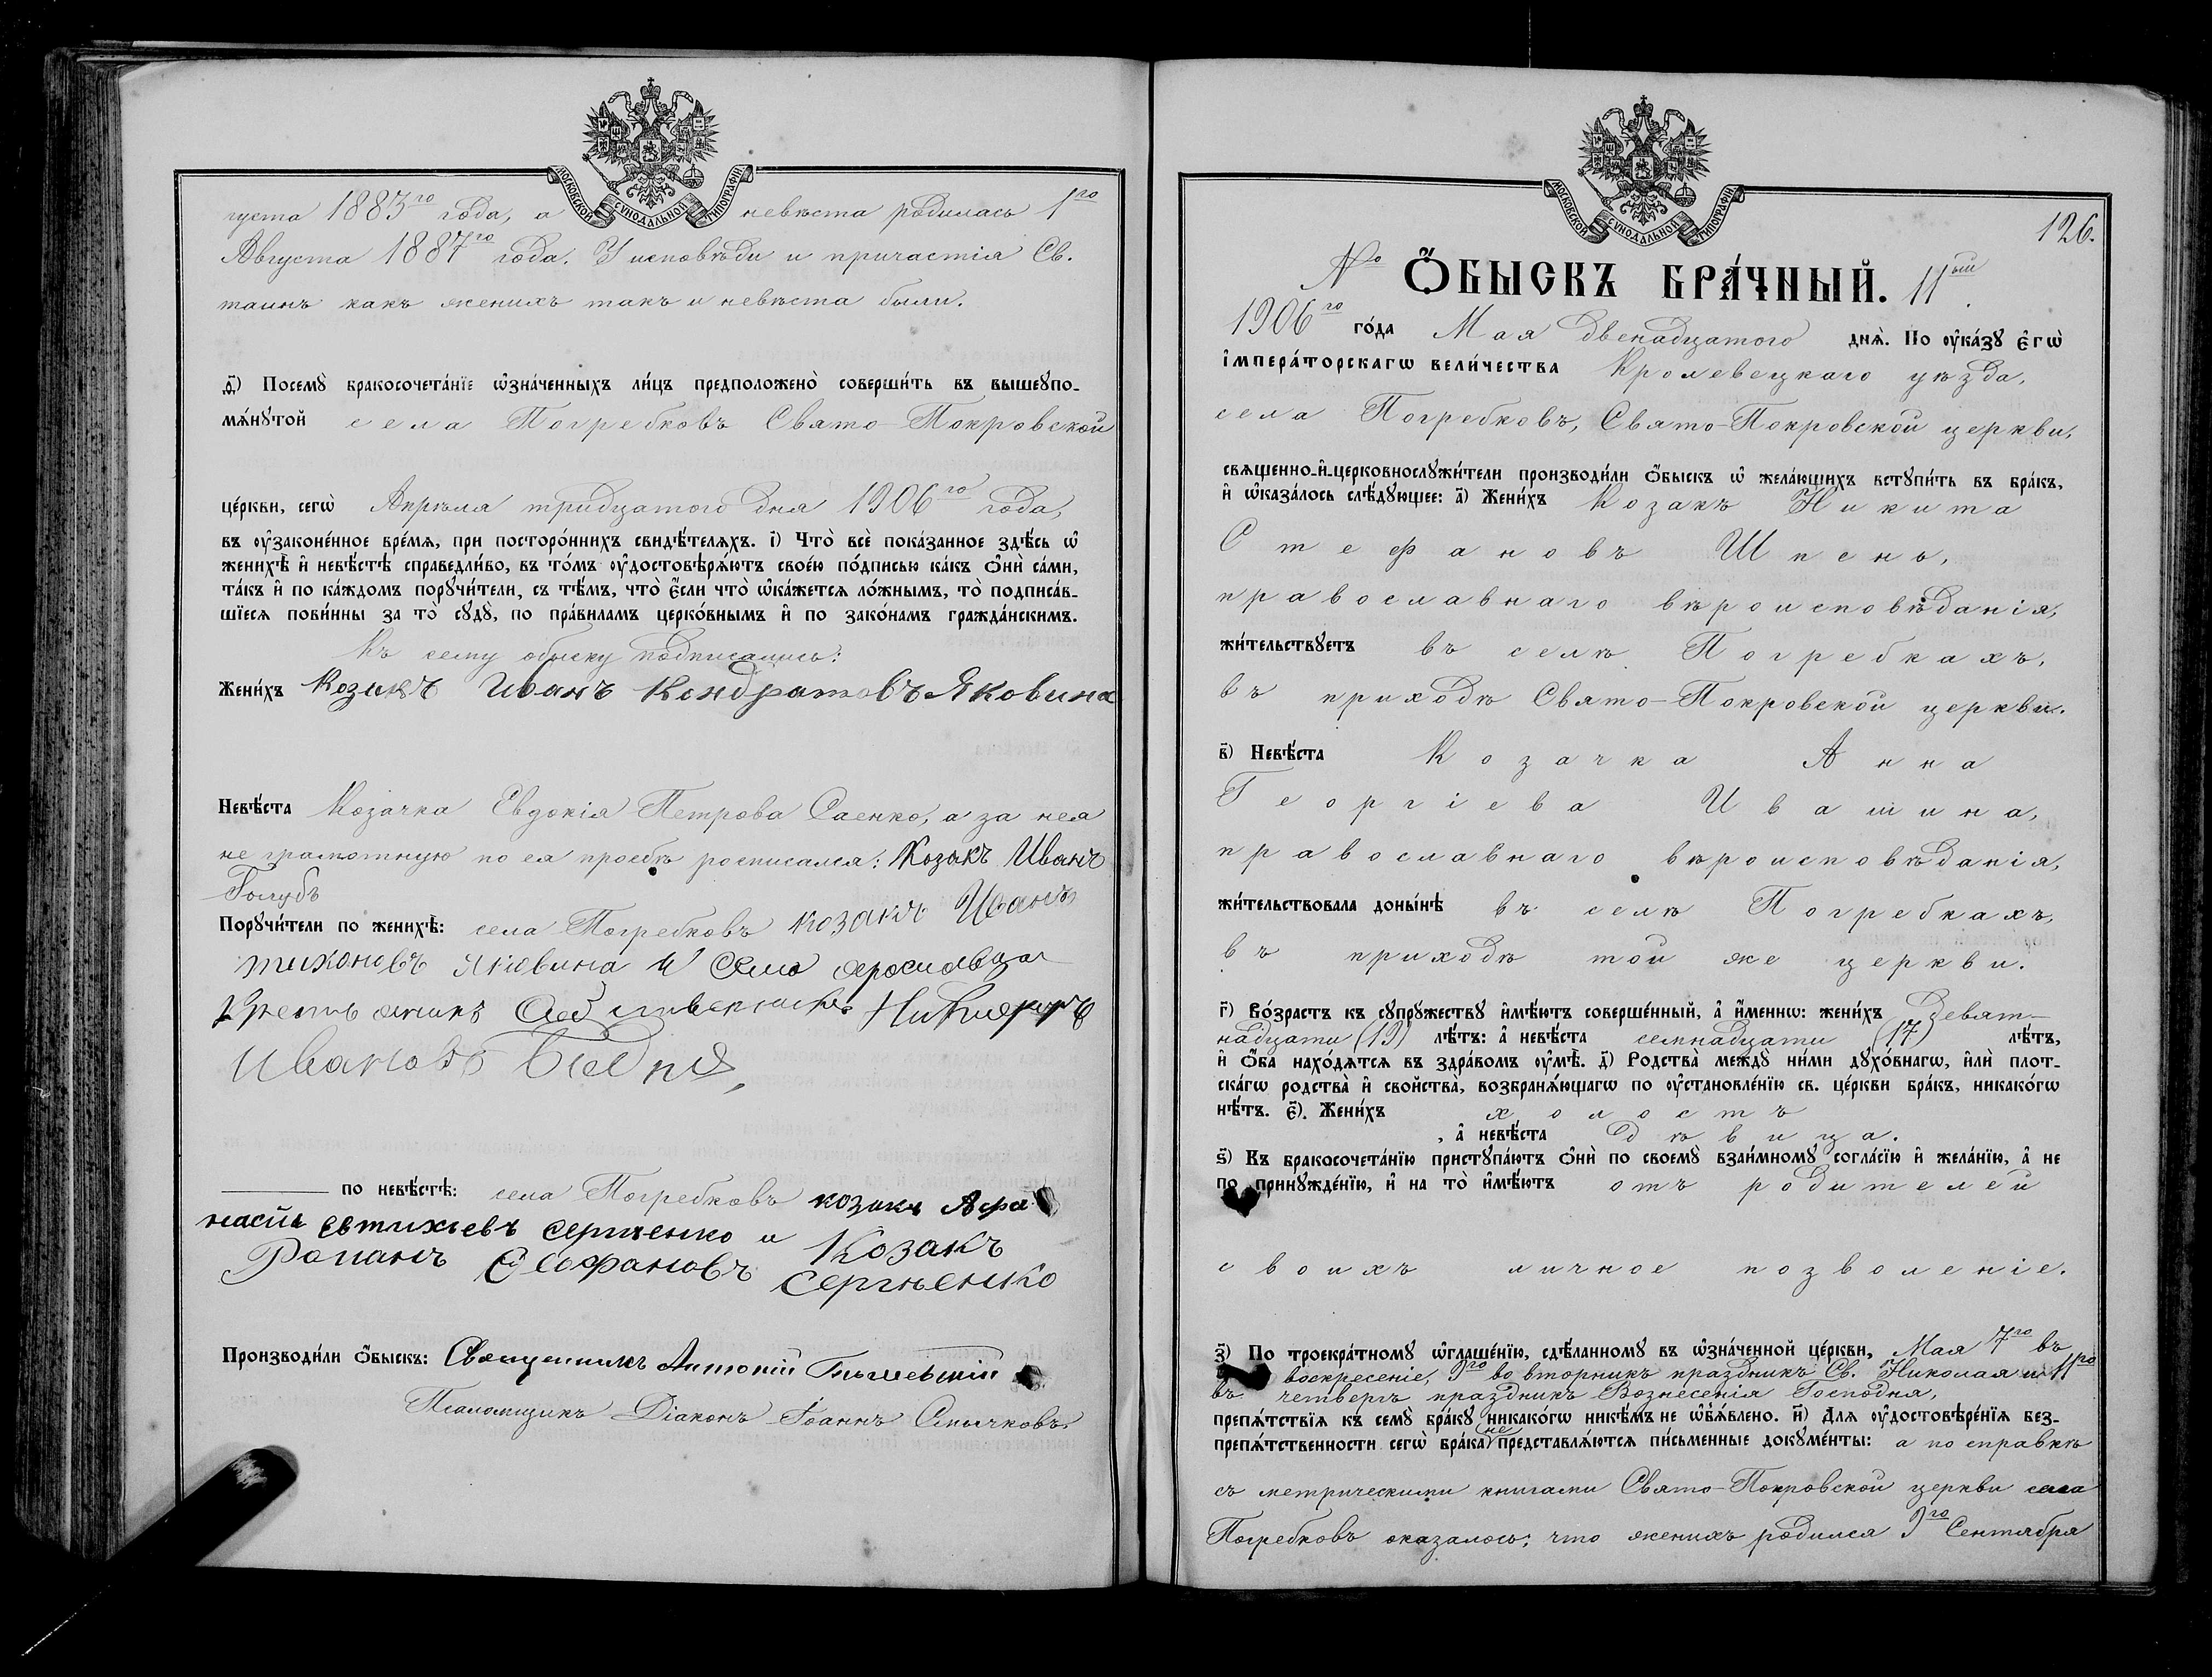 МОСКОВСКОЙ СѴНОДАЛЬНОЙ ТИПОГРАФІИ
густа 1883го года, а невѣста родилась 1го
Августа 1887го года. У исповѣди и причастія Св.
таинъ какъ женихъ такъ и невѣста были.
ѳ҃) Посемꙋ̀ бракосочета́нїе ѡ҆зна́ченныхъ ли́цъ предположено̀ соверши́ть въ вышеꙋпо-
мѧ́нꙋтой села Погребковъ Свято-Покровской
це́ркви, сегѡ̀ Апрѣля тридцатого дня 1906го года,
въ ᲂу҆законе́нное вре́мѧ, при посторо́ннихъ свидѣ́телѧхъ. і҃) Что̀ всѐ пока́занное здѣ́сь ѡ҆
женихѣ̀ и҆ невѣ́стѣ справедли́во, въ то́мъ ᲂу҆достовѣрѧ́ютъ свое́ю по́дписью ка́къ ѻ҆нѝ са́ми,
та́къ и҆ по ка́ждомъ порꙋчи́тели, съ тѣ́мъ, что̀ є҆́сли что̀ ѡ҆ка́жетсѧ ло́жнымъ, то̀ подписа́в-
шїесѧ пови́нны за то̀ сꙋдꙋ̀, по пра́виламъ церко́внымъ и҆ по зако́намъ гражда́нскимъ.
Къ сему обыску подписались:
Жени́хъ Козакъ Иванъ Кондратовъ Яковина
Невѣ́ста Козачка Евдокія Петрова Саенко, а за нея
не грамотную по ея просьбѣ росписался: Козакъ Иванъ
Голубъ
Порꙋчи́тели по женихѣ̀: села Погребковъ козакъ Иванъ
тихоновъ Яковина И
Ивановъ
по невѣ́стѣ: села Погребковъ козакъ Афа
насій Евтихіевъ Сергіенко и Козакъ
Романъ Ѳеофановъ Сергѣенко
Производи́ли ѻ҆́быскъ: Священникъ Антоній
Псаломщикъ Діаконъ Іоаннъ Смычковъ.
МОСКОВСКОЙ СѴНОДАЛЬНОЙ ТИПОГРАФІИ
126.
No Ѻ҆́БЫСКЪ БРА́ЧНЫЙ. 11ый
1906го го́да Мая двенадцатого днѧ̀. По ᲂу҆ка́зꙋ є҆гѡ̀
і҆мпера́торскагѡ вели́чества Кролевецкаго уѣзда,
села Погребковъ, Свято-Покровской церкви,
свѧщенно-и҆-церковнослꙋжи́тели производи́ли ѻ҆́быскъ ѡ҆ жела́ющихъ встꙋпи́ть въ бра́къ,
и҆ ѡ҆каза́лось слѣ́дꙋющее: а҃) Жени́хъ Козакъ Никита
Стефановъ Шпень,
православнаго вѣроисповѣданія,
жи́тельствꙋетъ въ селѣ Погребкахъ,
въ приходѣ Свято-Покровской церкви.
в҃) Невѣ́ста Козачка Анна
Георгіева Ивашина,
православнаго вѣроисповѣданія,
жи́тельствовала доны́нѣ въ селѣ Погребкахъ,
въ приходѣ той же церкви.
г҃) Во́зрастъ къ сꙋпрꙋ́жествꙋ и҆мѣ́ютъ соверше́нный, а҆ и҆́меннѡ: жени́хъ девят-
надцати (19) лѣ́тъ: а҆ невѣ́ста семнадцати (17) лѣ́тъ,
и҆ ѻ҆́ба нахо́дѧтсѧ въ здра́вомъ ᲂу҆мѣ̀. д҃) Родства̀ междꙋ̀ ни́ми дꙋхо́внагѡ, и҆лѝ плот-
ска́гѡ родства̀ и҆ сво́йства, возбранѧ́ющагѡ по ᲂу҆становле́нїю св. це́ркви бра́къ, никако́гѡ
нѣ́тъ. є҃). Жени́хъ холостъ
, а҆ невѣ́ста дѣвица.
ѕ҃) Къ бракосочета́нїю пристꙋпа́ютъ ѻ҆нѝ по своемꙋ̀ взаи́мномꙋ согла́сїю и҆ жела́нїю, а҆ не
по принꙋжде́нїю, и҆ на то̀ и҆мѣ́ютъ отъ родителей
своихъ личное позволеніе.
з҃) По троекра́тномꙋ ѡ҆глаше́нїю, сдѣ́ланномꙋ въ ѡ҆зна́ченной це́ркви, Мая 7го въ
воскресеніе, 9го во вторникъ праздникъ Св. Николая и 11го
въ четвергъ праздникъ Вознесенія Господня,
препѧ́тствїѧ къ семꙋ̀ бра́кꙋ никако́гѡ никѣ́мъ не ѡ҆б̾ѧ́влено. и҃) Длѧ ᲂу҆достовѣре́нїѧ без-
препѧ́тственности сегѡ̀ бра́ка не представлѧ́ютсѧ пи́сьменные докꙋме́нты: а по справкѣ
съ метрическими книгами Свято-Покровской церкви села
Погребковъ оказалось; что женихъ родился 9го Сентября